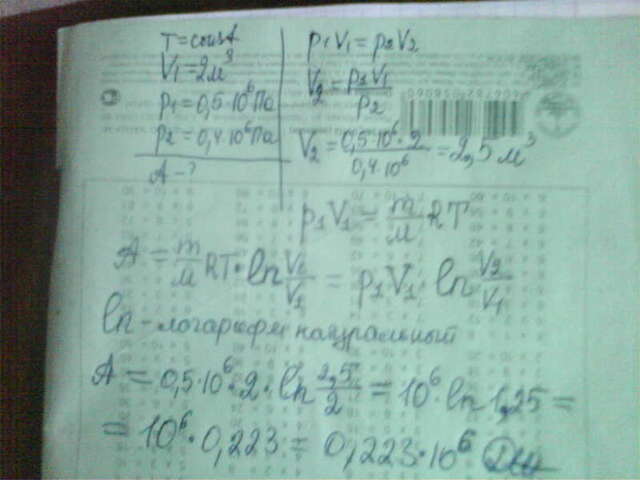 T = const
V1 = 2м³
p1 = 0,5·10⁶Па
p2 = 0,4·10⁶Па
A - ?
p1V1 = p2V2
V2 = p1V1/p2
V2 = 0,5·10⁶·2/0,4·10⁶ = 2,5м³
p1V1 = m/м RT
A = m/м RT·ln V2/V1 = p1V1 ln V2/V1
ln - логарифм натуральный
A = 0,5·10⁶·2·ln 2,5/2 = 10⁶·ln 1,25 =
= 10⁶·0,223 = 0,223·10⁶ Дж